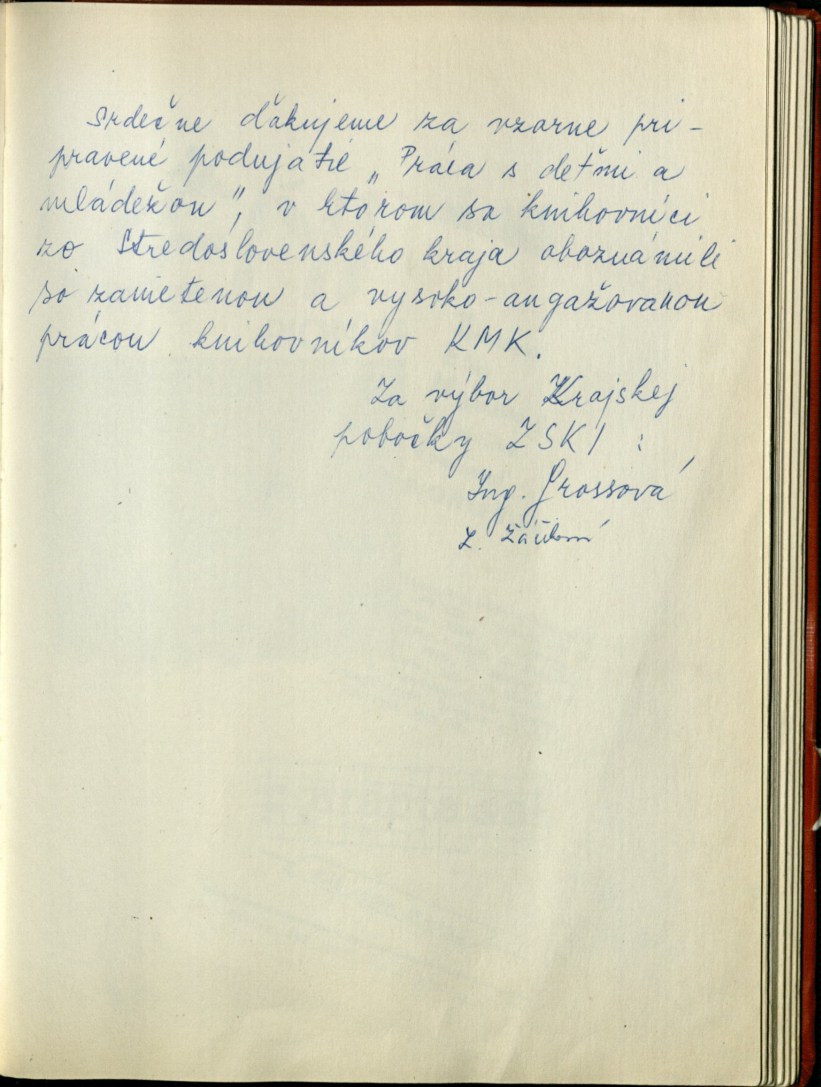 Srdečne ďakujeme za vzorne pri-
pravené podujatie „Práca s deťmi a
mládežou", v ktorom sa knihovníci
zo Stredoslovenského kraja oboznámili
so zanietenou a vysoko-angažovanou
prácou knihovníkov KMK.
Za výbor Krajskej
pobočky ZSKI :
Ing. Grossová